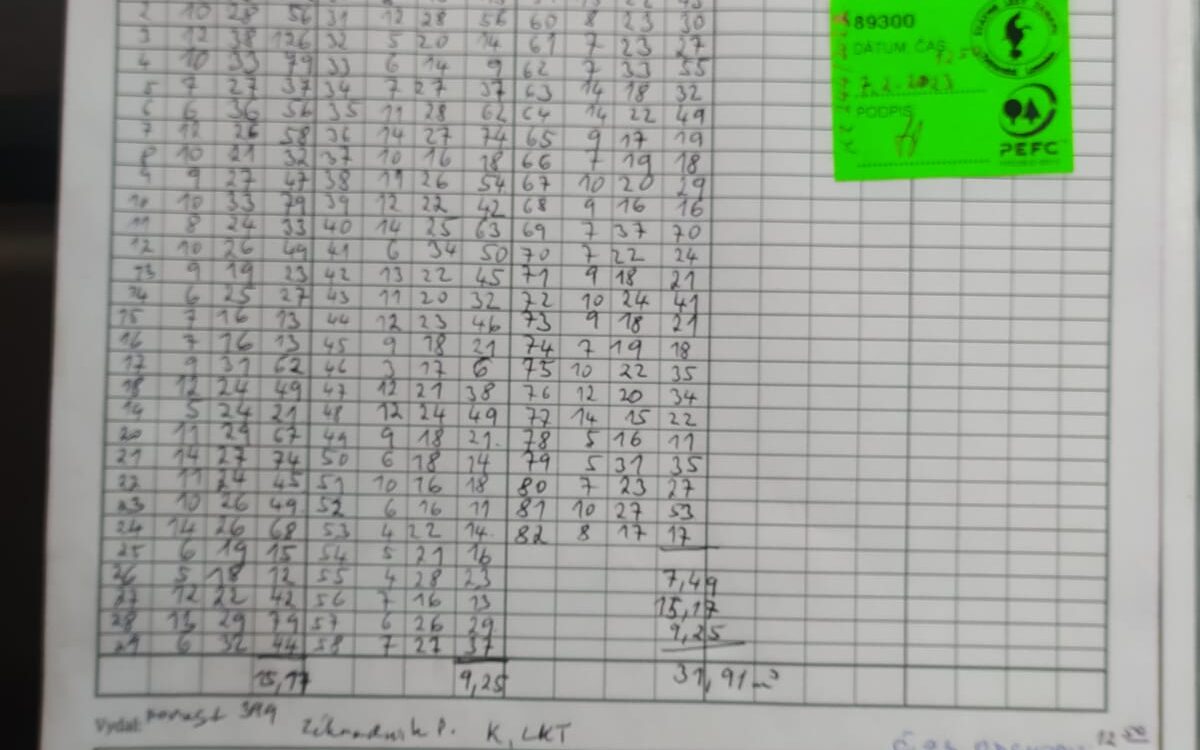 2 10 28 56 31 12 28 56 60 8 23 30
3 12 38 126 32 5 20 14 61 7 23 27
4 10 33 79 33 6 14 9 62 7 33 55
5 7 27 37 34 7 27 37 63 14 18 32
6 6 36 56 35 11 28 62 64 14 22 49
7 12 26 58 36 14 27 74 65 9 17 19
8 10 21 32 37 10 16 18 66 7 19 18
9 9 27 47 38 11 26 54 67 10 20 29
10 10 33 79 39 12 22 42 68 9 16 16
11 8 24 33 40 14 25 63 69 7 37 70
12 10 26 49 41 6 34 50 70 7 22 24
13 9 19 23 42 13 22 45 71 9 18 21
14 6 25 27 43 11 20 32 72 10 24 41
15 7 16 13 44 12 23 46 73 9 18 21
16 7 16 13 45 9 18 21 74 7 19 18
17 9 31 62 46 3 17 6 75 10 22 35
18 12 24 49 47 12 21 38 76 12 20 34
19 5 24 21 48 12 24 49 77 14 15 22
20 11 29 67 49 9 18 21 78 5 16 11
21 14 27 74 50 6 18 14 79 5 31 35
22 11 24 45 51 10 16 18 80 7 23 27
23 10 26 49 52 6 16 11 81 10 27 53
24 14 26 68 53 4 22 14 82 8 17 17
25 6 19 15 54 5 21 16
26 5 18 12 55 4 28 23 7,49
27 12 22 42 56 7 16 13 15,17
28 13 29 79 57 6 26 29 9,25
29 6 32 44 58 7 27 37
15,17 9,25 31,91 m³
Vydal: porast 399
K, LKT
12
89300
DÁTUM, ČAS
7.2.2023
PODPIS
PEFC